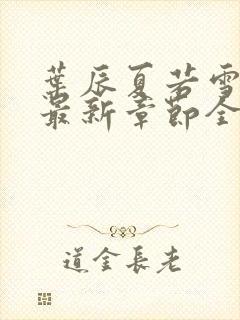 葉辰夏若雪
最新章節全
道金長老